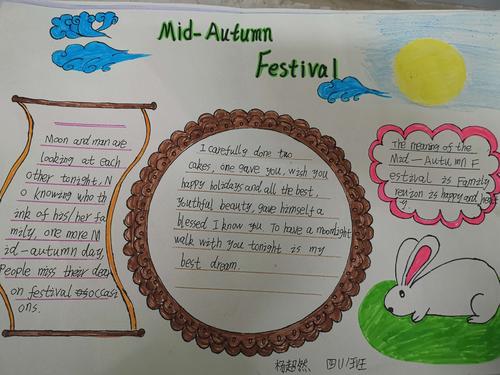 Mid-Autumn
Festival
Moon and man are
looking at each
other tonight, N
o knowing who th
ink of his/her fa
mily, one more M
id-autumn day,
People miss their dear
on festival occasi
ons.
I carefully done two
cakes, one gave you, wish you
happy holidays and all the best,
Youthful beauty, gave himself a
blessed I know you To have a moonlight
walk with you tonight is my
best dream.
The meaning of the
Mid-Autumn F
estival is Family
renion is happy and
杨超然 四(1)班